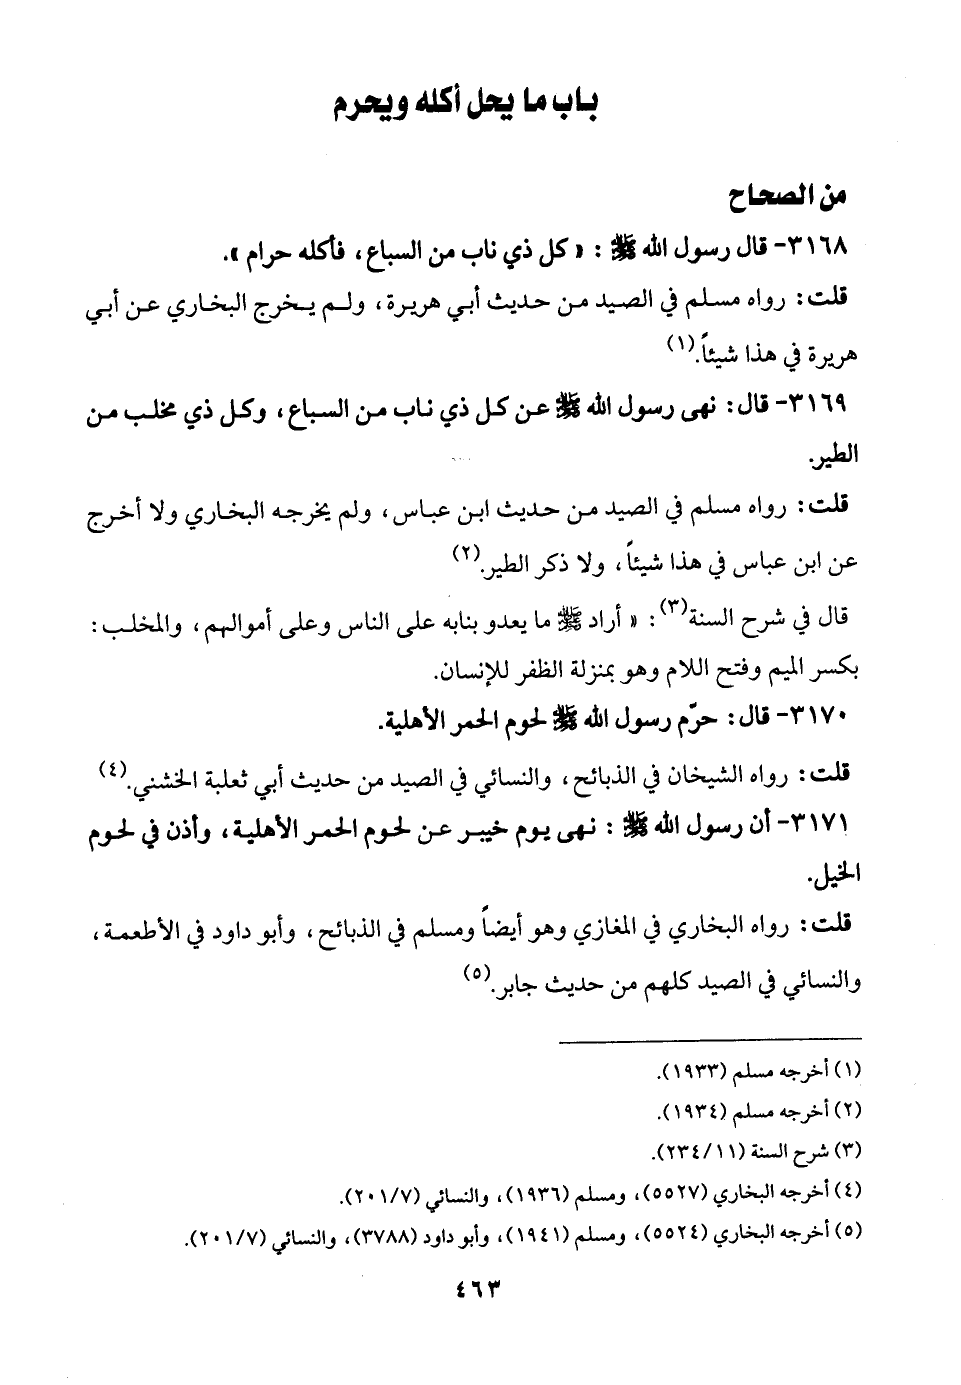 باب ما يحل أكله ويحرم
من الصحاح
٣١٦٨- قال رسول الله ﷺ : « كل ذي ناب من السباع، فأكله حرام ».
قلت: رواه مسلم في الصيد من حديث أبي هريرة، ولم يخرج البخاري عن أبي
هريرة في هذا شيئاً.(١)
٣١٦٩- قال: نهى رسول الله ﷺ عن كل ذي ناب من السباع، وكل ذي مخلب من
الطير.
قلت: رواه مسلم في الصيد من حديث ابن عباس، ولم يخرجه البخاري ولا أخرج
عن ابن عباس في هذا شيئاً، ولا ذكر الطير.(٢)
قال في شرح السنة(٣): « أراد ﷺ ما يعدو بنابه على الناس وعلى أموالهم، والمخلب:
بكسر الميم وفتح اللام وهو بمنزلة الظفر للإنسان.
٣١٧٠- قال: حرّم رسول الله ﷺ لحوم الحمر الأهلية.
قلت: رواه الشيخان في الذبائح، والنسائي في الصيد من حديث أبي ثعلبة الخشني.(٤)
٣١٧١- أن رسول الله ﷺ : نهى يوم خيبر عن لحوم الحمر الأهلية، وأذن في لحوم
الخيل.
قلت: رواه البخاري في المغازي وهو أيضاً ومسلم في الذبائح، وأبو داود في الأطعمة،
والنسائي في الصيد كلهم من حديث جابر.(٥)
(١) أخرجه مسلم (١٩٣٣).
(٢) أخرجه مسلم (١٩٣٤).
(٣) شرح السنة (٢٣٤/١١).
(٤) أخرجه البخاري (٥٥٢٧)، ومسلم (١٩٣٦)، والنسائي (٢٠١/٧).
(٥) أخرجه البخاري (٥٥٢٤)، ومسلم (١٩٤١)، وأبو داود (٣٧٨٨)، والنسائي (٢٠١/٧).
٤٦٣